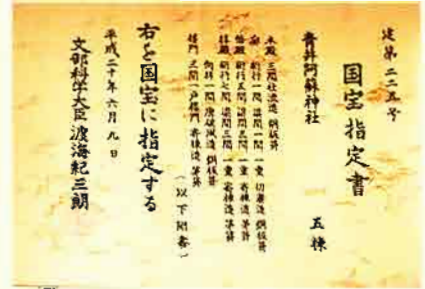 建第二二五号
国宝指定書
青井阿蘇神社 五棟
本殿 三間社流造 銅板葺
廊 桁行一間 梁間一間 一重 切妻造 銅板葺
幣殿 桁行五間 梁間三間 一重 寄棟造 茅葺
拝殿 桁行七間 梁間三間 一重 寄棟造 茅葺
向拝一間 唐破風造 銅板葺
楼門 三間一戸楼門 寄棟造 茅葺
（以下附書）
右を国宝に指定する
平成二十年六月九日
文部科学大臣 渡海紀三朗